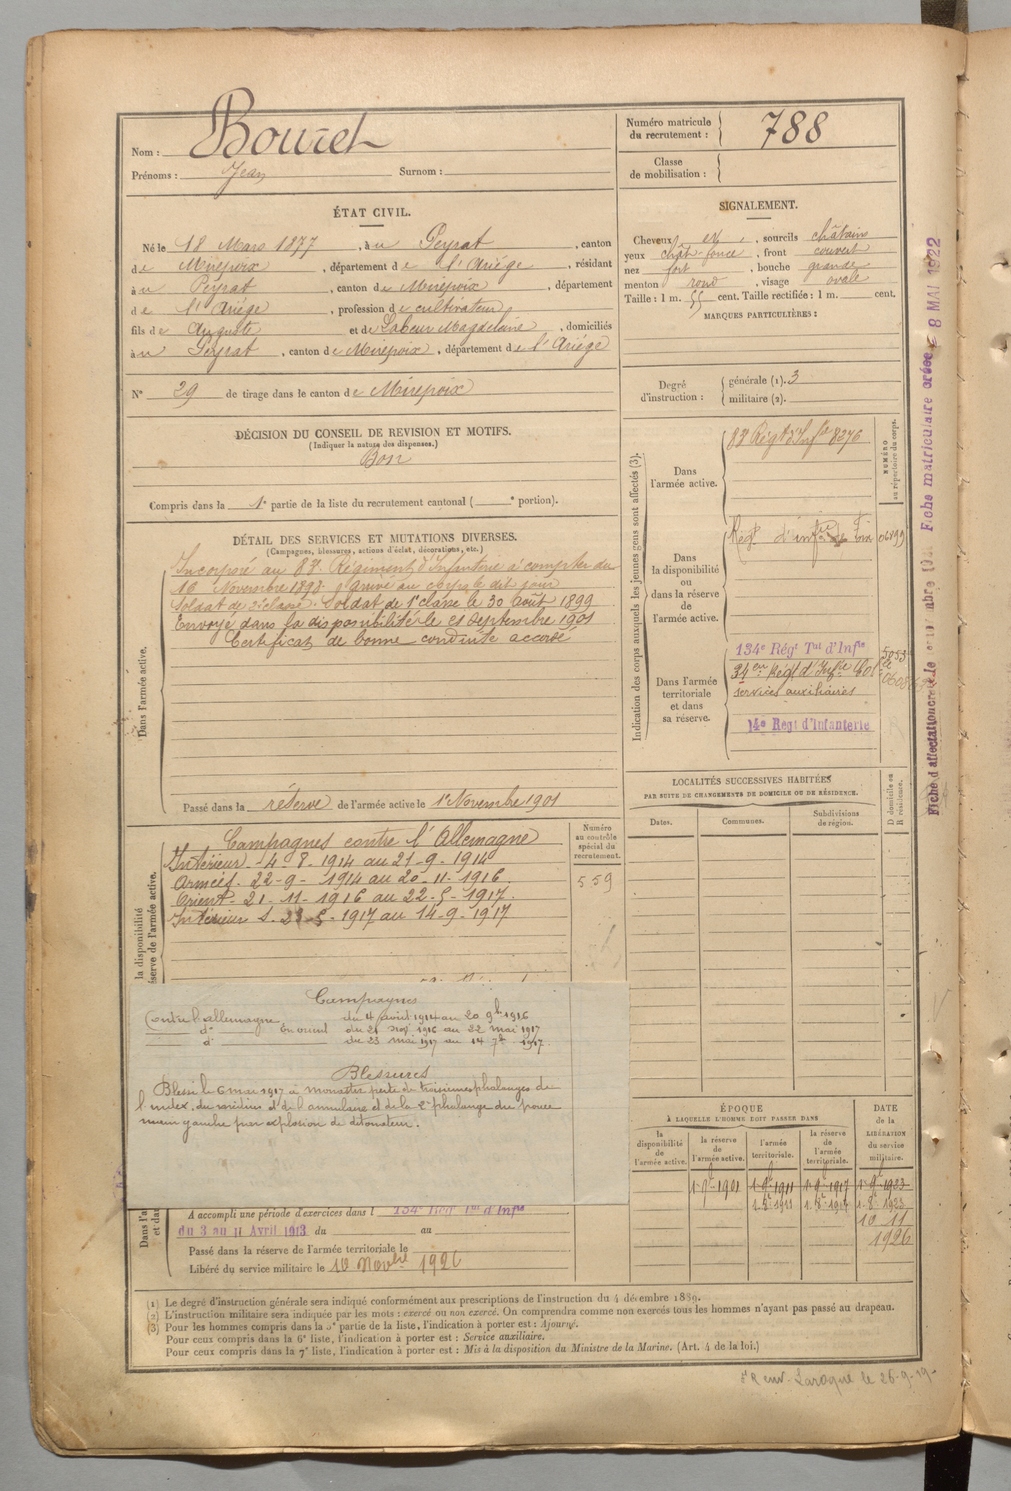 Nom : Bouret
Prénoms : Jean Surnom :
Numéro matricule du recrutement : 788
Classe de mobilisation :
ÉTAT CIVIL.
Né le 18 Mars 1877, à u Peyrat, canton
de Mirepoix, département de l'Ariége, résidant
à u Peyrat, canton de Mirepoix, département
de l'Ariége, profession de cultivateur
fils de Auguste et de Labeur Magdelaine, domiciliés
à u Peyrat, canton de Mirepoix, département de l'Ariége
N° 29 de tirage dans le canton de Mirepoix
SIGNALEMENT.
Cheveux et, sourcils châtains
yeux chât. foncé, front couvert
nez fort, bouche grande
menton rond, visage ovale
Taille : 1 m. 55 cent. Taille rectifiée : 1 m. cent.
MARQUES PARTICULIÈRES :
Degré d'instruction : générale (1). 3
militaire (2).
DÉCISION DU CONSEIL DE REVISION ET MOTIFS.
(Indiquer la nature des dispenses.)
Bon
Compris dans la 1e partie de la liste du recrutement cantonal ( e portion).
DÉTAIL DES SERVICES ET MUTATIONS DIVERSES.
(Campagnes, blessures, actions d'éclat, décorations, etc.)
Dans l'armée active.
Incorporé au 83e Régiment d'Infanterie à compter du
16 Novembre 1898. arrivé au corps le dit jour
Soldat de 2e classe. Soldat de 1e classe le 30 Août 1899
Envoyé dans la disponibilité le 21 Septembre 1901
Certificat de bonne conduite accordé
Passé dans la réserve de l'armée active le 1er Novembre 1901
Indication des corps auxquels les jeunes gens sont affectés (3).
NUMÉRO au répertoire du corps.
Dans l'armée active.
83e Régt d'Infie 8376
Dans la disponibilité ou dans la réserve de l'armée active.
Régt d'infie de Foix
Dans l'armée territoriale et dans sa réserve.
134e Régt Tal d'Infie
34eme Régt d'Infie Col
services auxiliaires
14e Régt d'Infanterie
Fiche matriculaire créée le 8 MAI 1922
LOCALITÉS SUCCESSIVES HABITÉES
PAR SUITE DE CHANGEMENTS DE DOMICILE OU DE RÉSIDENCE.
Dates. Communes. Subdivisions de région.
D domicile ou R résidence.
la disponibilité
réserve de l'armée active.
Campagnes contre l'Allemagne
Intérieur - 4-8-1914 au 21-9-1914
Armées. 22-9-1914 au 20-11-1916.
Orient - 21-11-1916 au 22-5-1917.
Intérieur S. 23-5-1917 au 14-9-1917
Numéro au contrôle spécial du recrutement.
559
Campagnes
Contre l'allemagne du 4 août 1914 au 20 9bre 1916
d° En orient du 21 nov 1916 au 22 mai 1917
d° du 23 mai 1917 au 14 7bre 1917.
Blessures
Blessé le 6 mai 1917 à monastir perte de troisièmes phalanges de
l'index, du médius et de l'annulaire et de la 2e phalange du pouce
main gauche par explosion de détonateur.
ÉPOQUE
À LAQUELLE L'HOMME DOIT PASSER DANS
la disponibilité de l'armée active.
la réserve de l'armée active.
l'armée territoriale.
la réserve de l'armée territoriale.
DATE de la LIBÉRATION du service militaire.
1-9b-1901 1-9b-1911 1-9b-1917 1-9b-1923
1-8b-1911 1-8b-1917 1-8b-1923
10 11
1926
A accompli une période d'exercices dans l 134e Régt Tal d'Infie
du 3 au 11 Avril 1913 du au
Passé dans la réserve de l'armée territoriale le
Libéré du service militaire le 10 Novbre 1926
(1) Le degré d'instruction générale sera indiqué conformément aux prescriptions de l'instruction du 4 décembre 1889.
(2) L'instruction militaire sera indiquée par les mots : exercé ou non exercé. On comprendra comme non exercés tous les hommes n'ayant pas passé au drapeau.
(3) Pour les hommes compris dans la 5e partie de la liste, l'indication à porter est : Ajourné.
Pour ceux compris dans la 6e liste, l'indication à porter est : Service auxiliaire.
Pour ceux compris dans la 7e liste, l'indication à porter est : Mis à la disposition du Ministre de la Marine. (Art. 4 de la loi.)
Laroque le 26-9-19-